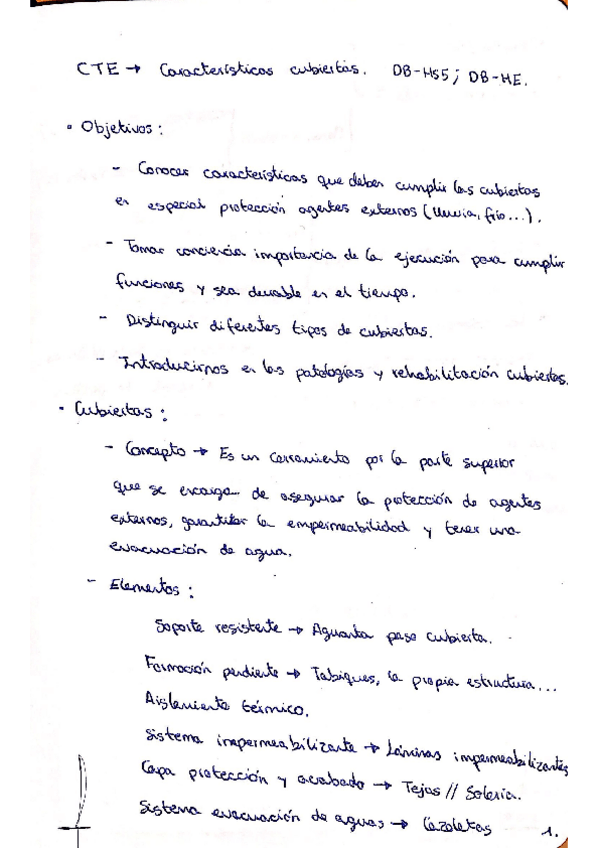 CTE → Características cubiertas. DB-HS5; DB-HE.
• Objetivos:
- Conocer características que deben cumplir las cubiertas
en especial protección agentes externos (lluvia, frío...).
- Tomar conciencia importancia de la ejecución para cumplir
funciones y sea durable en el tiempo.
- Distinguir diferentes tipos de cubiertas.
- Introducirnos en las patologías y rehabilitación cubiertas.
• Cubiertas:
- Concepto → Es un cerramiento por la parte superior
que se encarga de asegurar la protección de agentes
externos, garantizar la empermeabilidad y tener una
evacuación de agua.
- Elementos:
Soporte resistente → Aguanta peso cubierta.
Formación pendiente → Tabiques, la propia estructura...
Aislamiento térmico.
Sistema impermeabilizante → Láminas impermeabilizantes
Capa protección y acabado → Tejas // Solería.
Sistema evacuación de aguas → Cazoletas
1.